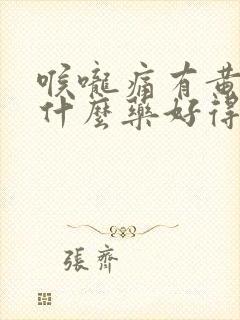 喉嚨痛有黃
什麼藥好得
張齊